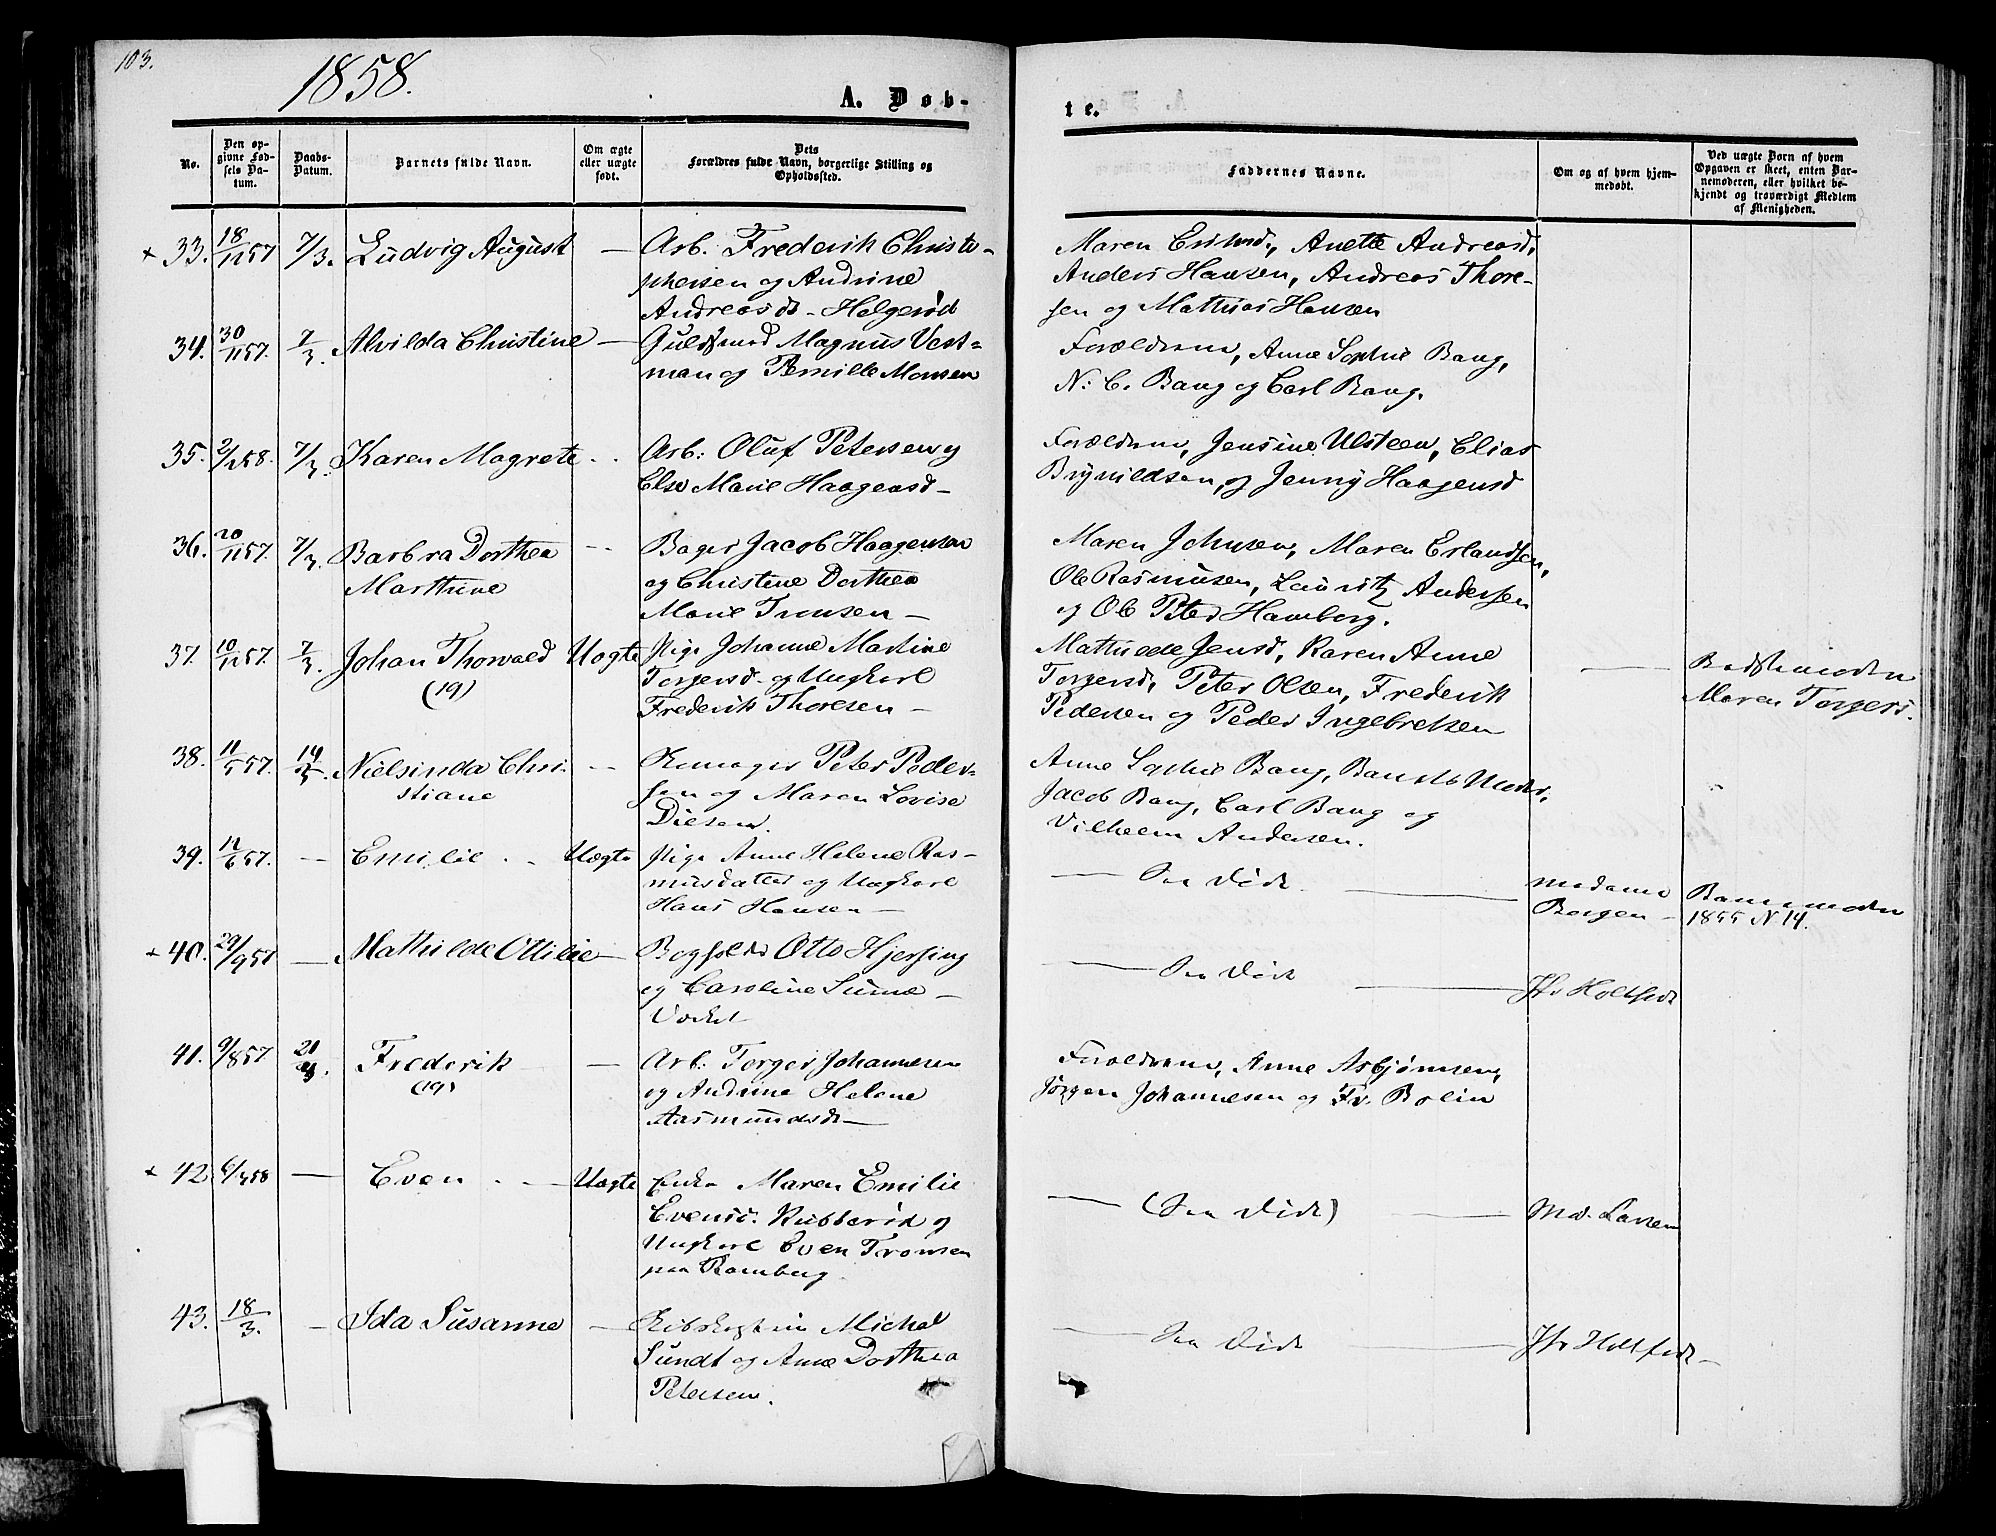 103.
1858.
A. Døb-
te.
No.
Den op-
givne Fød-
sels Da-
tum.
Daabs-
Datum.
Barnets fulde Navn.
Om ægte
eller uægte
født.
Dets
Forældres fulde Navn, borgerlige Stilling og
Opholdssted.
Faddernes Navne.
Om og af hvem hjem-
medøbt.
Ved uægte Børn af hvem
Opgaven er skeet, enten Bar-
nemoderen, eller hvilket be-
kjendt og troværdigt Medlem
af Menigheden.
+ 33. 18/12 57 7/3. Ludvig August — Arb. Frederik Christo-
phersen og Andrine
Andreasd. - Helgerød
Maren Erlind., Anette Andreasd.,
Anders Hansen, Andreas Thore-
sen og Mathias Hansen
34. 30/11 57. 7/3. Alvilda Christine — Guldsmed Magnus Vest-
man og Pernille Monsen
Forældrene, Anne Sophie Bang,
N. C. Bang og Carl Bang.
35. 2/1 58. 7/3. Karen Magrete Arb: Oluf Petersen og
Else Marie Haagensd -
Forældrene, Jensine Ulsteen, Elias
Brynildsen, og Jenny Haagensd
36. 20/11 57. 7/3 Barbra Dorthea
Marthine
Bager Jacob Haagensen
og Christine Dorthea
Marie Tronsen -
Maren Johnsen, Maren Erlandsen,
Ole Rasmusen, Lauritz Andersen
og Ole Peter Hamborg.
37. 10/12 57. 7/3. Johan Thorvald
(19)
Uægte Pige Johanne Martine
Torgersd. og Ungkarl
Frederik Thoresen -
Mathilde Jensd, Karen Anne
Torgersd, Peter Olsen, Frederik
Pedersen og Peder Ingebretsen
—
Maren Torgers.
38. 11/5 57. 14/3 Nielsinda Chri-
stiane
Peter Peder-
sen og Maren Lovise
Diesen.
Anne Sophie Bang,
Jacob Bang, Carl Bang og
Vilhelm Andersen.
39. 12/6 57. Emilie Uægte Pige Anne Helene Ras-
musdatter og Ungkarl
Hans Hansen -
— See Døde —
Madame
Borgen -
Barnemoderen
1855 N 14.
+ 40. 29/9 57 — Mathilde Ottilie — Otto Hjersing
og Caroline
— See Døde —
Jfr Holtfodt
41. 9/8 57 21/3 Frederik
(19)
— Arb: Torger Johannesen
og Andrine Helene
Aasmundsd. —
Forældrene, Anne Asbjørnsen,
Jørgen Johannesen og Fr. Bolin
+ 42. 6/1 58 — Even Uægte Enke Maren Emilie
Evensd. Rubberød og
Ungkarl Even Tronsen
paa Ramberg.
— (See Døde) —
Md. Larsen
43. 18/3. — Ida Susanne — Michal
Sundt og Anne Dorthea
Petersen.
— See Døde —
Jfr Holtfodt -